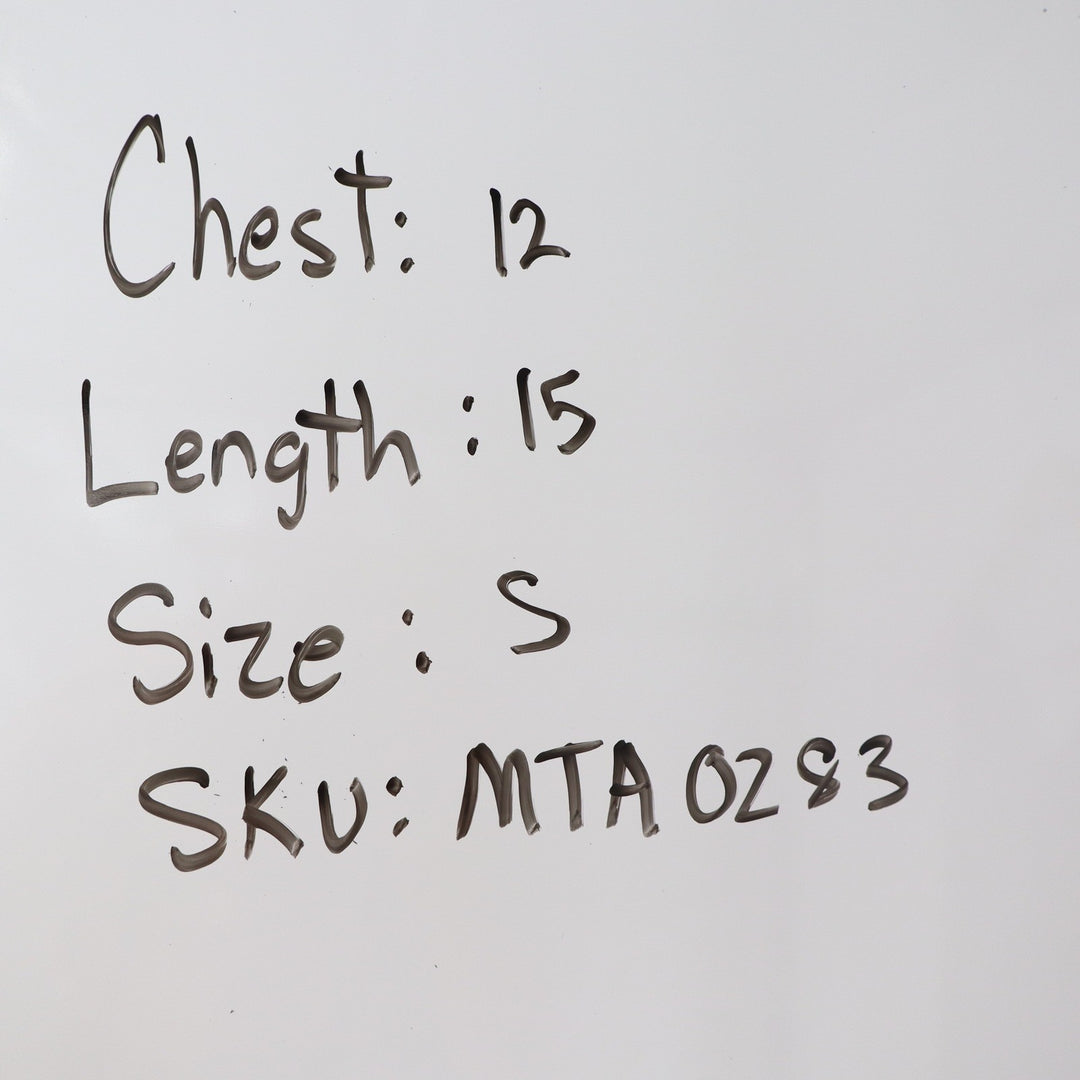 Chest: 12
Length: 15
Size: S
SKU: MTA0283